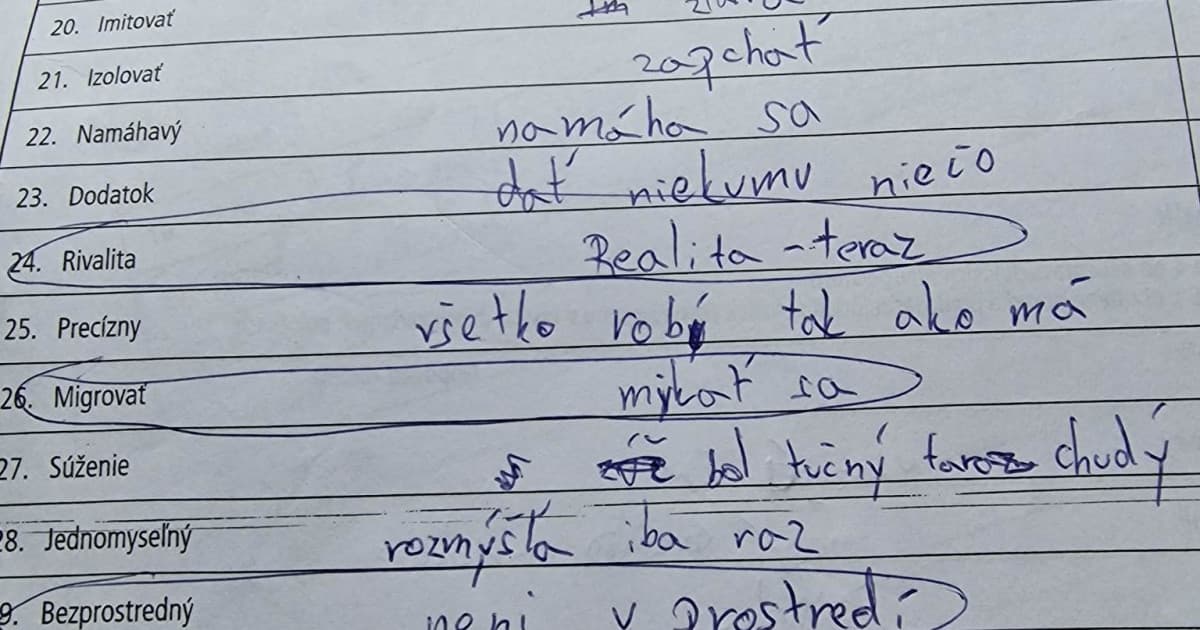 20. Imitovať
21. Izolovať zapchať
22. Namáhavý namáha sa
23. Dodatok dať niekumu niečo
24. Rivalita Realita - teraz
25. Precízny všetko robí tak ako má
26. Migrovať mýkať sa
27. Súženie bol tučný taraz chudý
28. Jednomyseľný rozmýšľa iba raz
9. Bezprostredný neni v prostredí